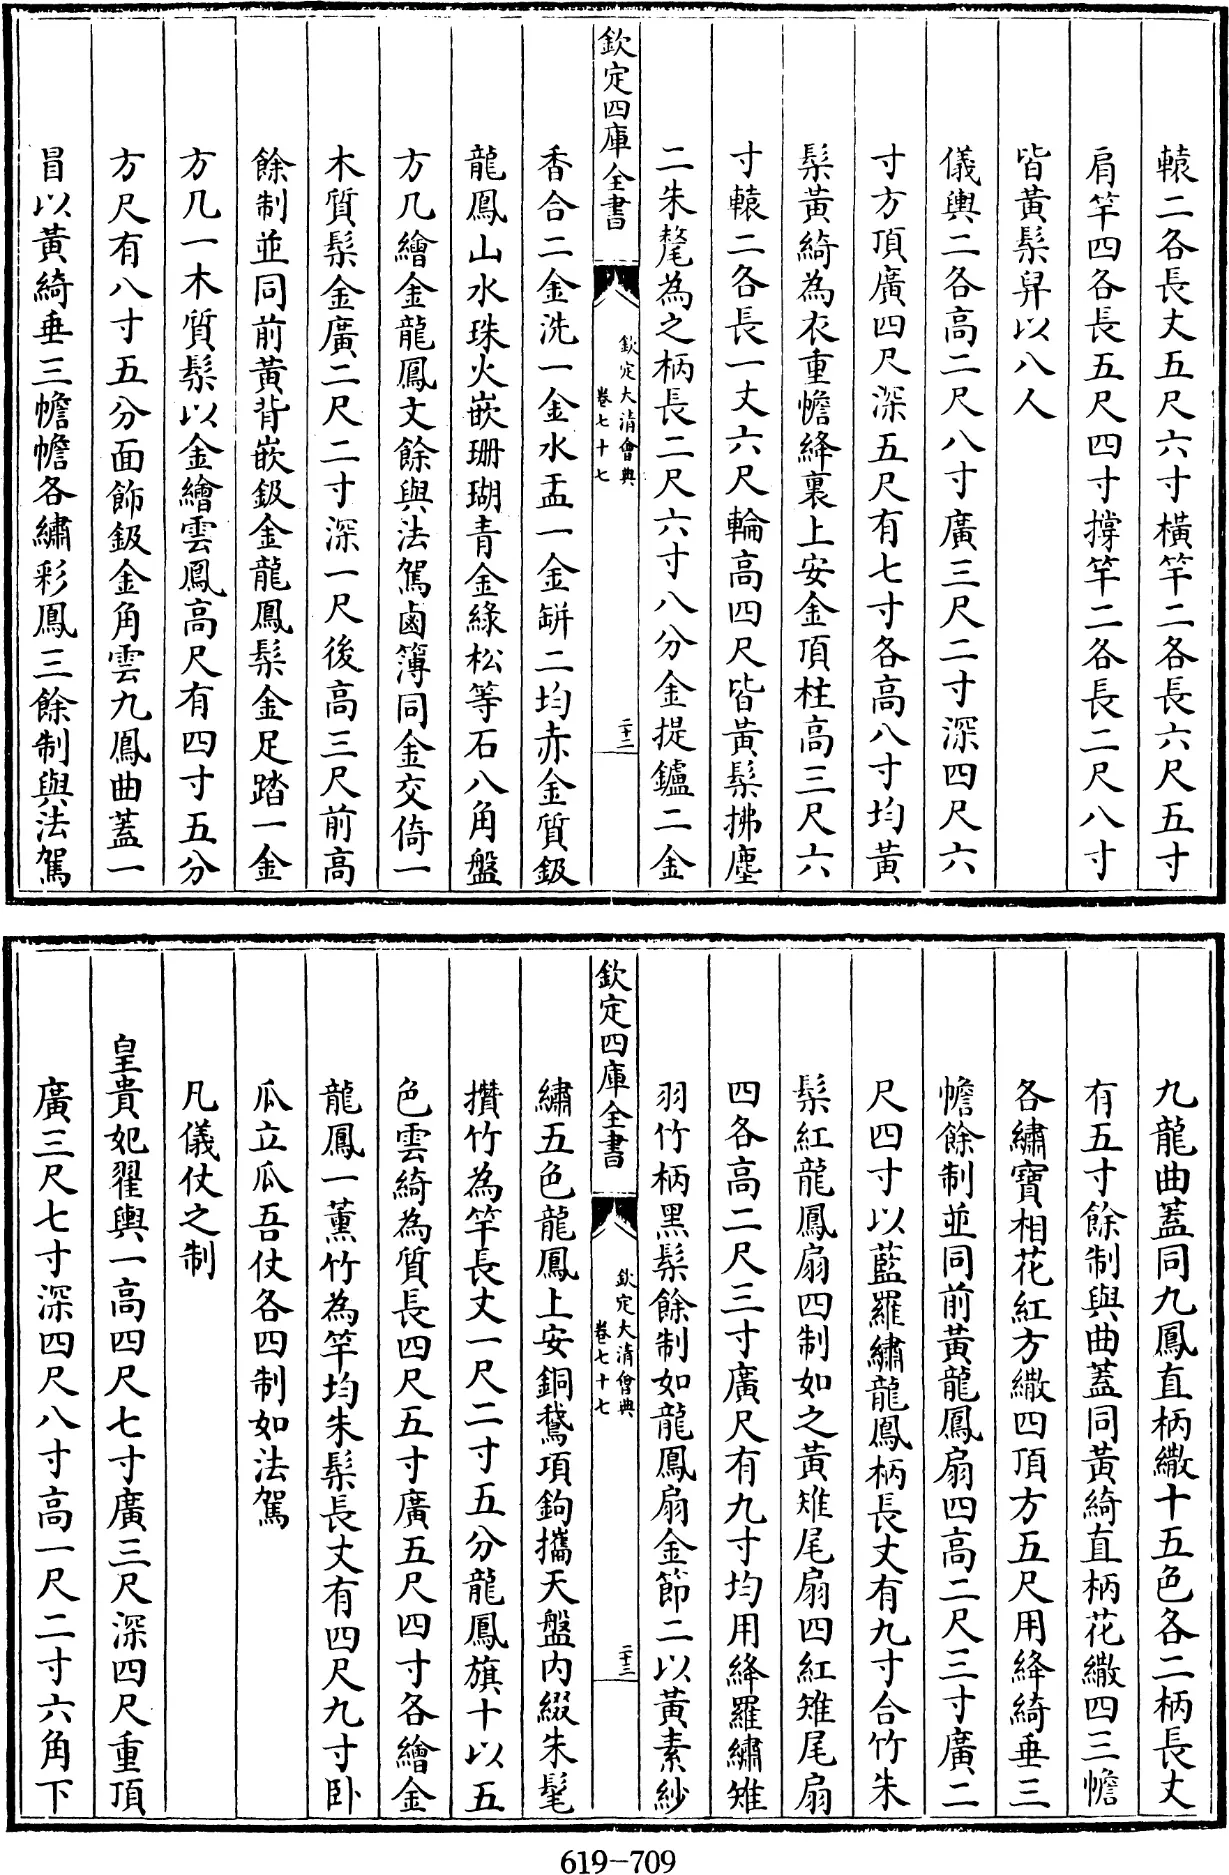 轅二各長丈五尺六寸橫竿二各長六尺五寸
肩竿四各長五尺四寸撐竿二各長二尺八寸
皆黃髹舁以八人
儀輿二各高二尺八寸廣三尺二寸深四尺六
寸方頂廣四尺深五尺有七寸各高八寸均黃
髹黃綺為衣重幨絳裏上安金頂柱高三尺六
寸轅二各長一丈六尺輪高四尺皆黃髹拂塵
二朱氂為之柄長二尺六寸八分金提鑪二金
欽定四庫全書
欽定大清會典
卷七十七
二十二
香合二金洗一金水盂一金缾二均赤金質鈒
龍鳳山水珠火嵌珊瑚青金綠松等石八角盤
方几繪金龍鳳文餘與法駕鹵簿同金交倚一
木質髹金廣二尺二寸深一尺後高三尺前高
餘制並同前黃背嵌鈒金龍鳳髹金足踏一金
方几一木質髹以金繪雲鳳高尺有四寸五分
方尺有八寸五分面飾鈒金角雲九鳳曲蓋一
冒以黃綺垂三幨幨各繡彩鳳三餘制與法駕
九龍曲蓋同九鳳直柄繖十五色各二柄長丈
有五寸餘制與曲蓋同黃綺直柄花繖四三幨
各繡寶相花紅方繖四頂方五尺用絳綺垂三
幨餘制並同前黃龍鳳扇四高二尺三寸廣二
尺四寸以藍羅繡龍鳳柄長丈有九寸合竹朱
髹紅龍鳳扇四制如之黃雉尾扇四紅雉尾扇
四各高二尺三寸廣尺有九寸均用絳羅繡雉
羽竹柄黑髹餘制如龍鳳扇金節二以黃素紗
欽定四庫全書
欽定大清會典
卷七十七
二十三
繡五色龍鳳上安銅鵞項鉤攜天盤内綴朱髦
攢竹為竿長丈一尺二寸五分龍鳳旗十以五
色雲綺為質長四尺五寸廣五尺四寸各繪金
龍鳳一薰竹為竿均朱髹長丈有四尺九寸卧
瓜立瓜吾仗各四制如法駕
凡儀仗之制
皇貴妃翟輿一高四尺七寸廣三尺深四尺重頂
廣三尺七寸深四尺八寸高一尺二寸六角下
619-709